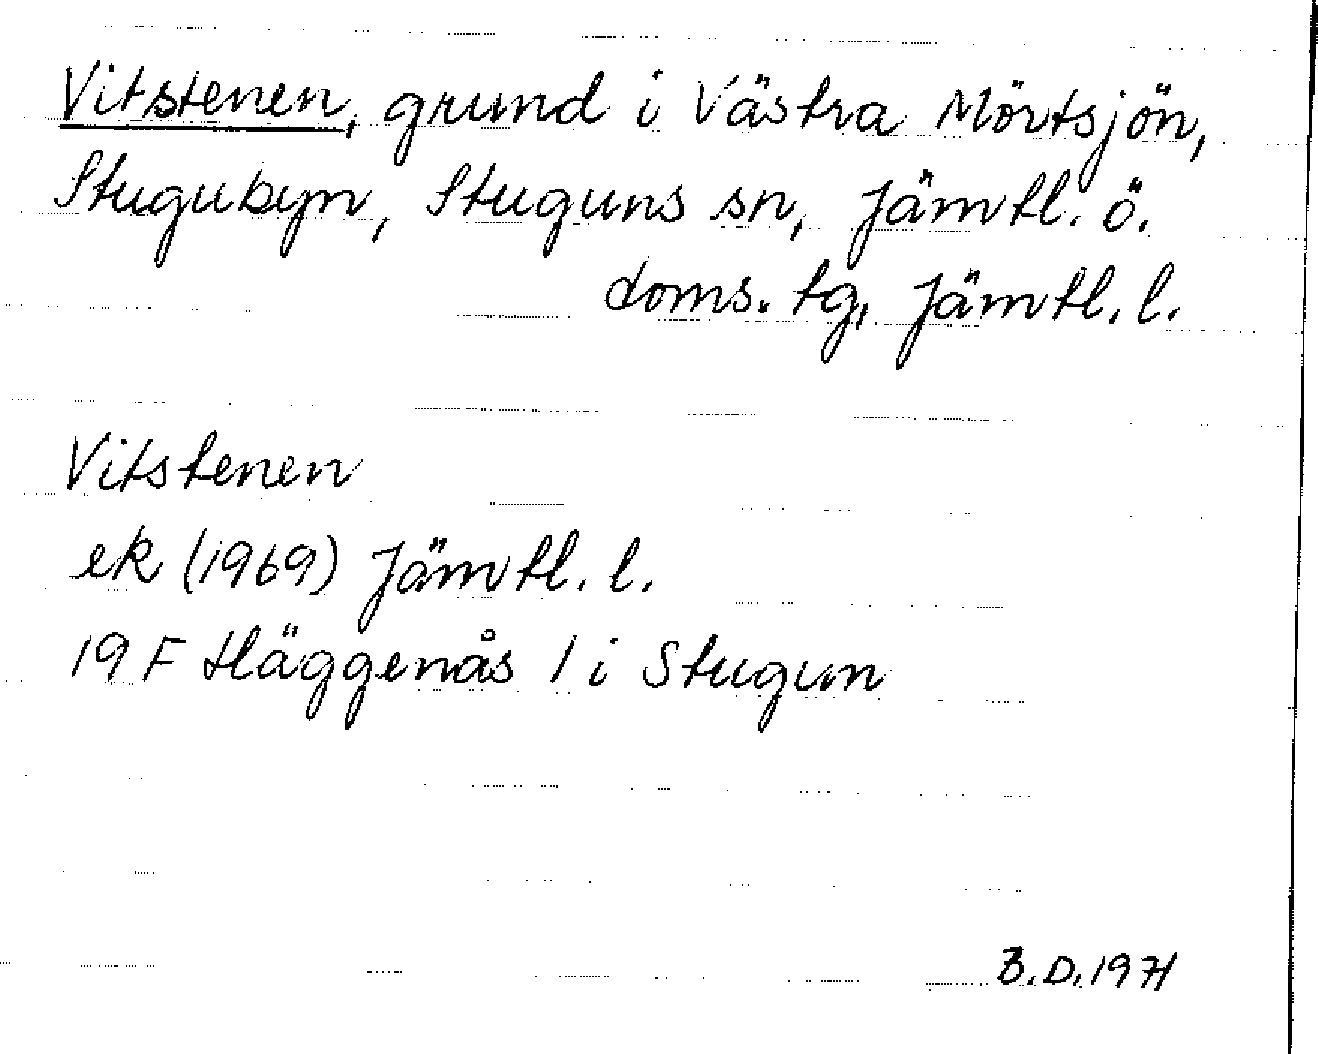 Vitstenen, grund i Västra Mörtsjön,
Stugubyn, Stuguns sn, Jämtl. ö.
doms. tg, Jämtl. l.
Vitstenen
ek (1969) Jämtl. l.
19 F Häggenås 1 i Stugun
B.D. 1971